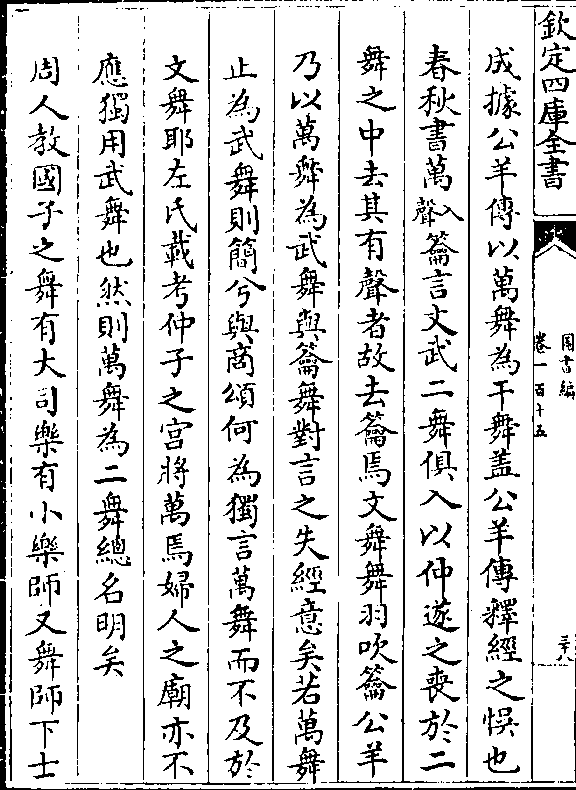 欽定四庫全書
圖書編
卷一百十五
三十八
成據公羊傳以萬舞為干舞盖公羊傳釋經之悞也
春秋書萬入聲籥言文武二舞俱入以仲遂之喪於二
舞之中去其有聲者故去籥焉文舞舞羽吹籥公羊
乃以萬舞為武舞與籥舞對言之失經意矣若萬舞
止為武舞則簡兮與商頌何為獨言萬舞而不及於
文舞耶左氏載考仲子之宮將萬焉婦人之廟亦不
應獨用武舞也然則萬舞為二舞總名明矣
周人教國子之舞有大司樂有小樂師又舞師下士